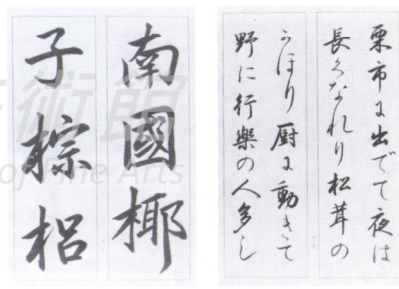 栗市に出でて夜は
長くなれり松茸の
かほり厨に動きて
野に行樂の人多し
南國椰
子棕梠
術館
of Fine Arts